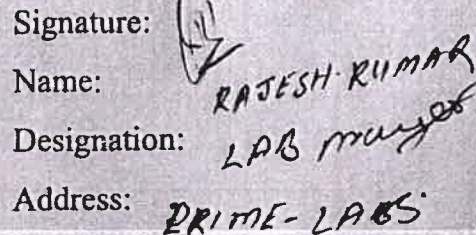 Signature:
Name: RAJESH KUMAR
Designation: LAB manager
Address: PRIME-LABS